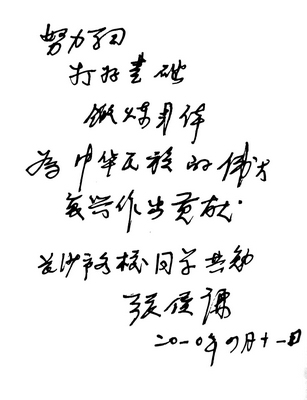 努力学习
打好基础
锻炼身体
為中华民族的伟大
复兴作出贡献.
长沙市各校同学共勉
张履谦
二〇一〇年四月十一日